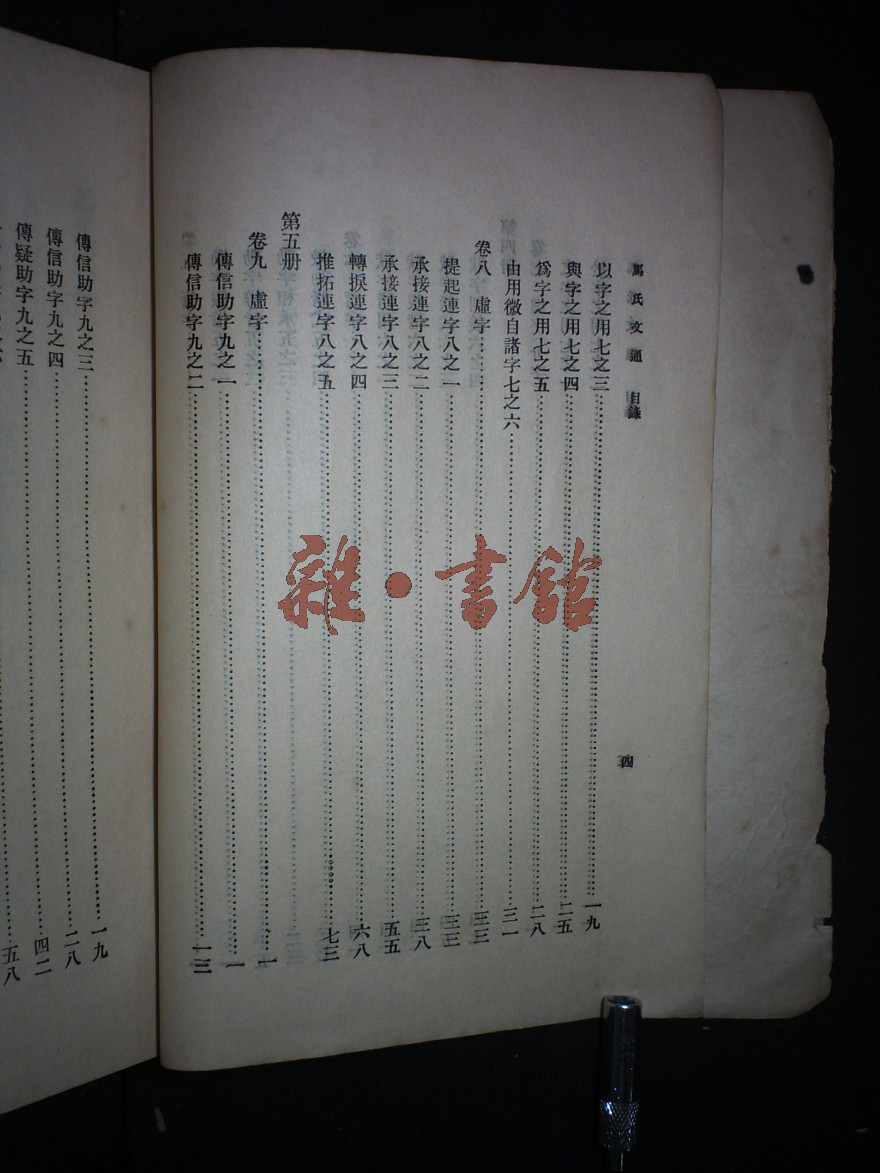 馬氏文通 目錄
四
以字之用七之三 一九
與字之用七之四 二五
爲字之用七之五 二八
由用微自諸字七之六 三一
卷八 虛字 三三
提起連字八之一 三三
承接連字八之二 三八
承接連字八之三 五五
轉捩連字八之四 六八
推拓連字八之五 七三
第五册
卷九 虛字 一
傳信助字九之一 一
傳信助字九之二 一三
傳信助字九之三 一九
傳信助字九之四 二八
傳疑助字九之五 四二
五八
雜·書館